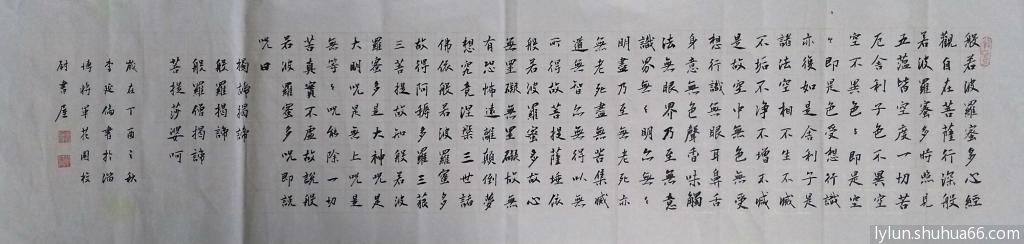 般若波羅蜜多心經
觀自在菩薩行深般
若波羅蜜多時照見
五蘊皆空度一切苦
厄舍利子色不異空
空不異色色即是空
々即是色受想行識
亦復如是舍利子是
諸法空相不生不滅
不垢不淨不增不減
是故空中無色無受
想行識無眼耳鼻舌
身意無色聲香味觸
法無眼界乃至無意
識界無々明亦無々
明盡乃至無老死亦
無老死盡無苦集滅
道無智亦無得以無
所得故菩提薩埵依
般若波羅蜜多故心
無罣礙無罣礙故無
有恐怖遠離顛倒夢
想究竟涅槃三世諸
佛依般若波羅蜜多
故得阿耨多羅三藐
三菩提故知般若波
羅蜜多是大神咒是
大明咒是無上咒是
無等々咒能除一切
苦真實不虛故說般
若波羅蜜多咒即說
咒曰
揭諦揭諦
般羅揭諦
般羅僧揭諦
菩提莎婆呵
歲在丁酉之秋
李倫書於淄
博將軍花園校
尉書屋
lylun.shuhua66.com